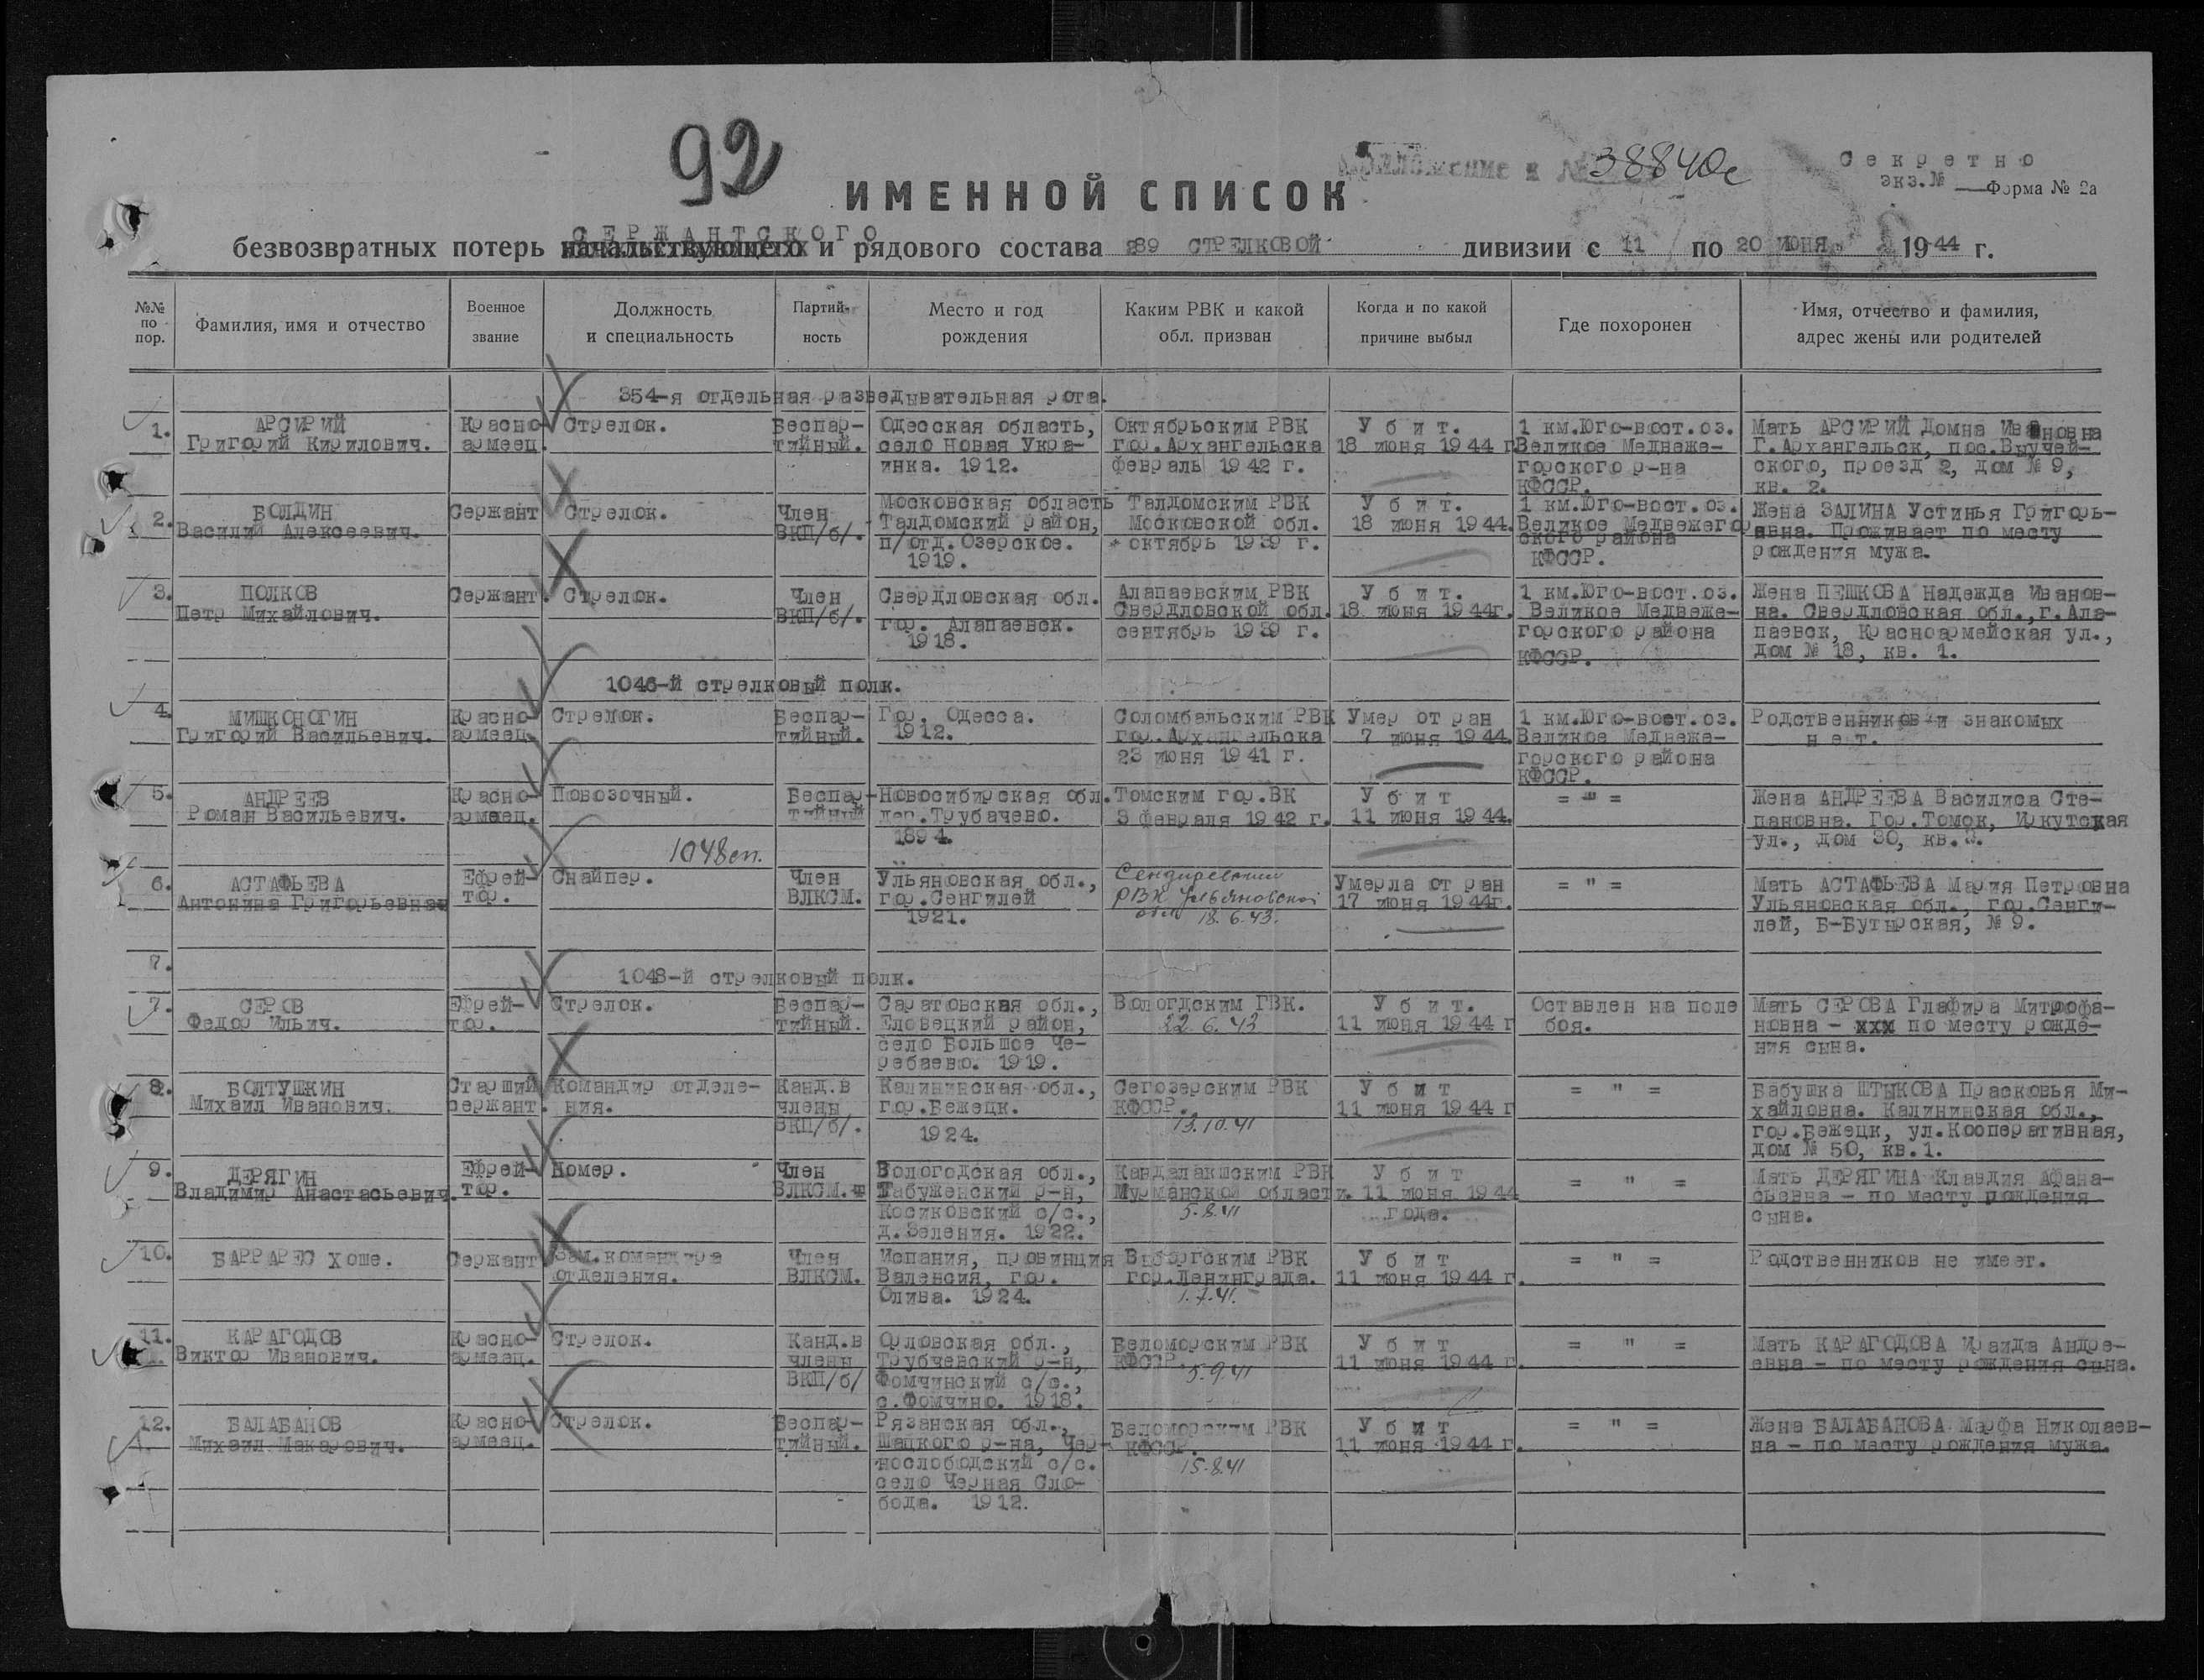 92
Приложение к № 38840с
Секретно
экз.№ Форма № 2а
ИМЕННОЙ СПИСОК
СЕРЖАНТСКОГО
безвозвратных потерь начальствующего и рядового состава 289 СТРЕЛКОВОЙ дивизии с 11 по 20 ИЮНЯ 1944 г.
№№ по пор.
Фамилия, имя и отчество
Военное звание
Должность и специальность
Партий- ность
Место и год рождения
Каким РВК и какой обл. призван
Когда и по какой причине выбыл
Где похоронен
Имя, отчество и фамилия, адрес жены или родителей
354-я отдельная разведывательная рота.
1.
АРСИРИЙ
Григорий Кирилович.
Красно-
армеец.
Стрелок.
Беспар-
тийный.
Одесская область,
село Новая Укра-
инка. 1912.
Октябрьским РВК
гор.Архангельска
февраль 1942 г.
Убит.
18 июня 1944 г.
1 км.Юго-вост.оз.
Великое Медвеже-
горского р-на
КФССР.
Мать АРСИРИЙ Домна Ивановна
Г.Архангельск, пос.Выучей-
ского, проезд 2, дом № 9,
кв. 2.
2.
БОЛДИН
Василий Алексеевич.
Сержант
Стрелок.
Член
ВКП/б/.
Московская область
Талдомский район,
п/отд.Озерское.
1919.
Талдомским РВК
Московской обл.
октябрь 1939 г.
Убит.
18 июня 1944.
1 км.Юго-вост.оз.
Великое Медвежего
рского района
КФССР.
Жена ЗАЛИНА Устинья Григорь-
евна. Проживает по месту
рождения мужа.
3.
ПОЛКОВ
Петр Михайлович.
Сержант.
Стрелок.
Член
ВКП/б/.
Свердловская обл.
гор. Алапаевск.
1918.
Алапаевским РВК
Свердловской обл.
сентябрь 1939 г.
Убит.
18 июня 1944г.
1 км.Юго-вост.оз.
Великое Медвеже-
горского района
КФССР.
Жена ПЕШКОВА Надежда Иванов-
на. Свердловская обл.,г.Ала-
паевск, Красноармейская ул.,
дом № 18, кв. 1.
1046-й стрелковый полк.
4.
МИШКОНОГИН
Григорий Васильевич.
Красно-
армеец.
Стрелок.
Беспар-
тийный.
Гор. Одесса.
1912.
Соломбальским РВК
гор.Архангельска
23 июня 1941 г.
Умер от ран
7 июня 1944.
1 км.Юго-вост.оз.
Великое Медвеже-
горского района
КФССР.
Родственников и знакомых
нет.
5.
АНДРЕЕВ
Роман Васильевич.
Красно-
армеец.
Повозочный.
Беспар-
тийный
Новосибирская обл.
дер.Трубачево.
1894.
Томским гор.ВК
3 февраля 1942 г.
Убит
11 июня 1944.
= " =
Жена АНДРЕЕВА Василиса Сте-
пановна. Гор.Томск, Иркутская
ул., дом 30, кв.3.
1048сп.
6.
АСТАФЬЕВА
Антонина Григорьевна
Ефрей-
тор.
Снайпер.
Член
ВЛКСМ.
Ульяновская обл.,
гор.Сенгилей
1921.
РВК Ульяновской
обл 18.6.43.
Умерла от ран
17 июня 1944г.
= " =
Мать АСТАФЬЕВА Мария Петровна
Ульяновская обл., гор.Сенги-
лей, Б-Бутырская, № 9.
7.
1048-й стрелковый полк.
7.
СЕРОВ
Федор Ильич.
Ефрей-
тор.
Стрелок.
Беспар-
тийный.
Саратовская обл.,
Еловецкий район,
село Большое Че-
ребаево. 1919.
Вологдским ГВК.
22.6.43
Убит.
11 июня 1944 г
Оставлен на поле
боя.
Мать СЕРОВА Глафира Митрофа-
новна - ххх по месту рожде-
ния сына.
8.
БОЛТУШКИН
Михаил Иванович.
Старший
сержант.
Командир отделе-
ния.
Канд.в
члены
ВКП/б/.
Калининская обл.,
гор.Бежецк.
1924.
Сегозерским РВК
КФССР.
13.10.41
Убит
11 июня 1944 г
= " =
Бабушка ШТЫКОВА Прасковья Ми-
хайловна. Калининская обл.,
гор.Бежецк, ул.Кооперативная,
дом № 50, кв.1.
9.
ДЕРЯГИН
Владимир Анастасьевич.
Ефрей-
тор.
Номер.
Член
ВЛКСМ.
Вологодская обл.,
Табуженский р-н,
Косиковский с/с.,
д.Зеления. 1922.
Кандалакшским РВК
Мурманской области.
5.8.41
Убит
11 июня 1944
года.
= " =
Мать ДЕРЯГИНА Клавдия Афана-
сьевна - по месту рождения
сына.
10.
БАРРАРЕС Хоше.
Сержант
Зам.командира
отделения.
Член
ВЛКСМ.
Испания, провинция
Валенсия, гор.
Олива. 1924.
Выборгским РВК
гор.Ленинграда.
1.7.41.
Убит
11 июня 1944 г.
= " =
Родственников не имеет.
11.
КАРАГОДОВ
Виктор Иванович.
Красно-
армеец.
Стрелок.
Канд.в
члены
ВКП/б/
Орловская обл.,
Трубчевский р-н,
Фомчинский с/с.,
с.Фомчино. 1918.
Беломорским РВК
КФССР.
5.9.41
Убит
11 июня 1944 г.
= " =
Мать КАРАГОДОВА Ираида Андре-
евна - по месту рождения сына.
12.
БАЛАБАНОВ
Михаил Макарович.
Красно-
армеец.
Стрелок.
Беспар-
тийный.
Рязанская обл.,
Шацкого р-на, Чер-
нослободский с/с.
село Черная Сло-
бода. 1912.
Беломорским РВК
КФССР.
15.8.41
Убит
11 июня 1944 г.
= " =
Жена БАЛАБАНОВА Марфа Николаев-
на - по месту рождения мужа.